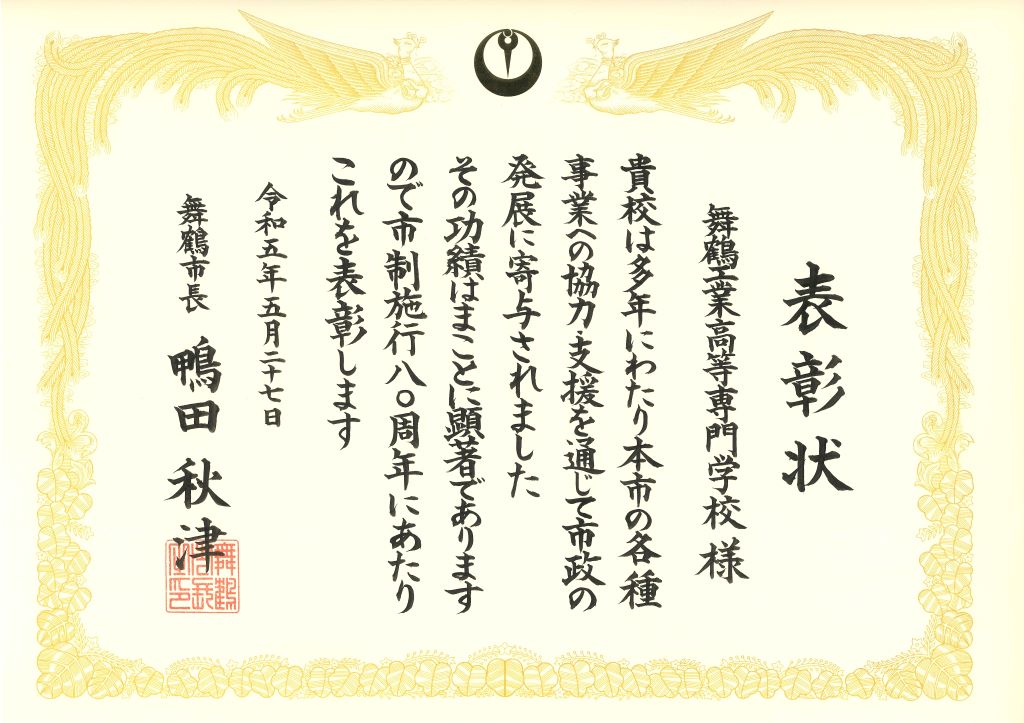 表彰状
舞鶴工業高等専門学校 様
貴校は多年にわたり本市の各種
事業への協力・支援を通じて市政の
発展に寄与されました
その功績はまことに顕著であります
ので市制施行八〇周年にあたり
これを表彰します
令和五年五月二十七日
舞鶴市長 鴨田 秋津